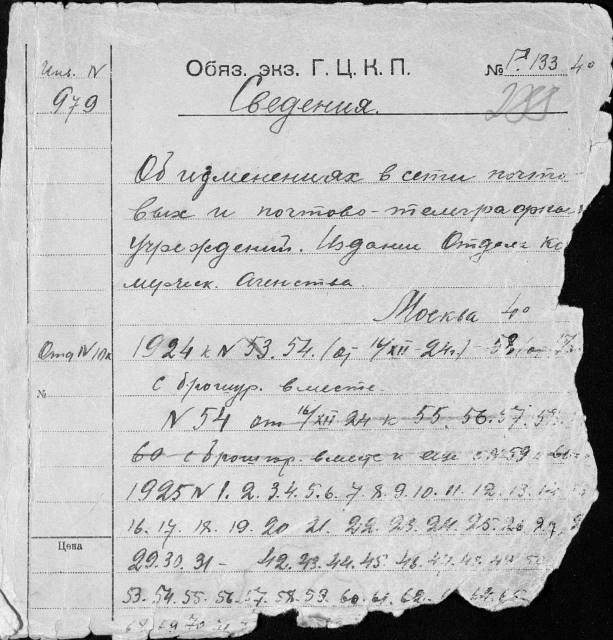 Инв. N
979
Обяз. экз. Г. Ц. К. П.
№ 133 4°
Сведения.
Об изменениях в сети почто-
вых и почтово-телеграфных
учреждений. Издание Отдела Ко
мерческ. Агенства.
Москва 4°
1924 к N 53. 54. (от 16/XII - 24г.) - 58.
с брошур. вместе.
№
N 54 от 16/XII 24 к 55. 56. 57. 58.
60 с брошюр. вместе и еще с N 59
1925 N 1. 2. 3. 4. 5. 6. 7. 8. 9. 10. 11. 12. 13. 14.
16. 17. 18. 19. 20 21. 22. 23. 24. 25. 26 27.
Цена
29. 30. 31 - 42. 43. 44. 45. 46. 47. 48. 49. 50
53. 54. 55. 56. 57. 58. 59. 60. 61. 62.
68. 69. 70